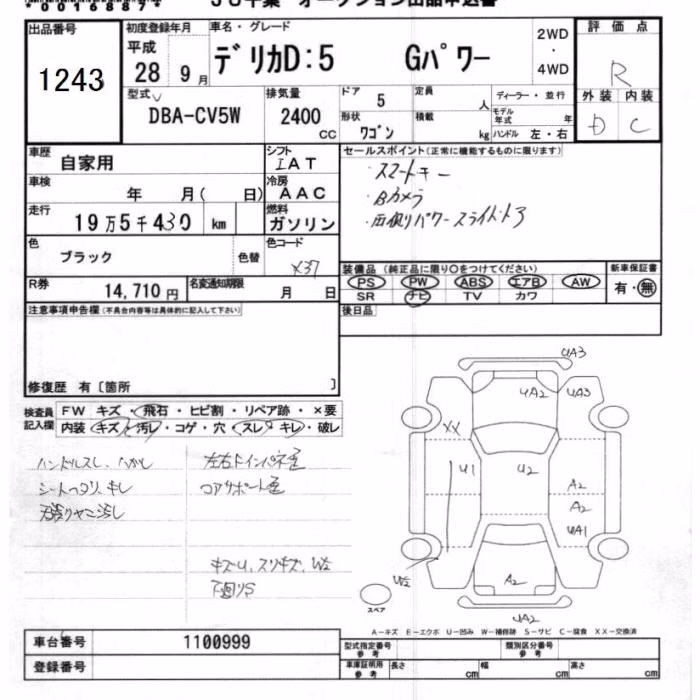 *00168887*
JU千葉 オークション出品申込書
出品番号 初度登録年月 車名・グレード 2WD・4WD 評価点
1243 平成 28 9月 デリカD:5 Gパワー R
型式 DBA-CV5W 排気量 2400 CC ドア 5 定員 人 ディーラー・並行 外装 内装
形状 ワゴン 積載 kg モデル年式 年 ハンドル 左・右 D C
車歴 自家用 シフト IAT セールスポイント(正常に機能するものに限ります)
車検 年 月( 日) 冷房 AAC ・スマートキー
走行 19万5千430 km 燃料 ガソリン ・Bカメラ
・左側パワースライドドア
色 ブラック 色替 色コード X37
装備品(純正品に限り○をつけてください) 新車保証書
R券 14,710円 名変通知期限 月 日 PS PW ABS エアB AW 有・無
SR ナビ TV カワ
注意事項申告欄(不具合内容等は具体的に記入して下さい) 後日品
修復歴 有〔箇所 〕
検査員記入欄 FW キズ・飛石・ヒビ割・リペア跡・×要
内装 キズ・汚レ・コゲ・穴・スレ・キレ・破レ
ハンドルスレ、ハガレ 左右Fインパネ歪
シートヘタリ、キレ コアサポート歪
天張りヤニ汚レ
キズU、スリキズ、W2
下回りS
UA3
UA2 UA3
XX
U1 U2
A2
A2
UA1
W2 A2
UA2
スペア
A-キズ E-エクボ U-凹み W-補修跡 S-サビ C-腐食 XX-交換済
車台番号 1100999 型式指定番号 参考 類別区分番号 参考
登録番号 車庫証明用 参考 長さ cm 幅 cm 高さ cm